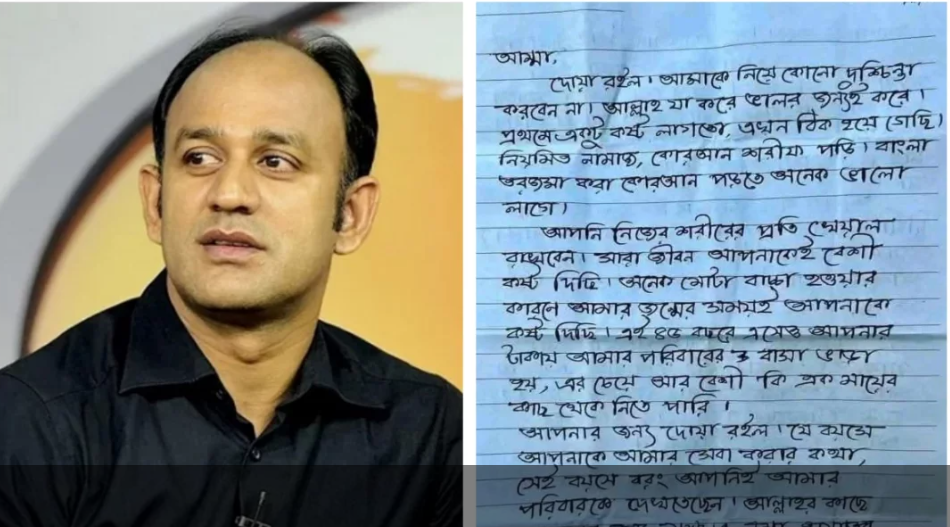 আম্মা,
দোয়া রইল। আমাকে নিয়ে কোনো দুশ্চিন্তা
করবেন না। আল্লাহ যা করে ভালর জন্যই করে।
প্রথমে একটু কষ্ট লাগতো, এখন ঠিক হয়ে গেছি।
নিয়মিত নামাজ, কোরআন শরীফ পড়ি। বাংলা
তরজমা করা কোরআন পড়তে অনেক ভালো
লাগে।
আপনি নিজের শরীরের প্রতি খেয়াল
রাখবেন। সারা জীবন আপনাকেই বেশী
কষ্ট দিছি। অনেক মোটা বাচ্চা হওয়ার
কারণে আমার জন্মের সময়ই আপনাকে
কষ্ট দিছি। এই ৪৫ বছরে এসেও আপনার
টাকায় আমার পরিবারের ও বাসা ভাড়া
হয়, এর চেয়ে আর বেশী কি এক মায়ের
কাছ থেকে নিতে পারি।
আপনার জন্য দোয়া রইল। যে বয়সে
আপনাকে আমার সেবা করার কথা,
সেই বয়সে বরং আপনিই আমার
পরিবারকে দেখতেছেন। আল্লাহর কাছে